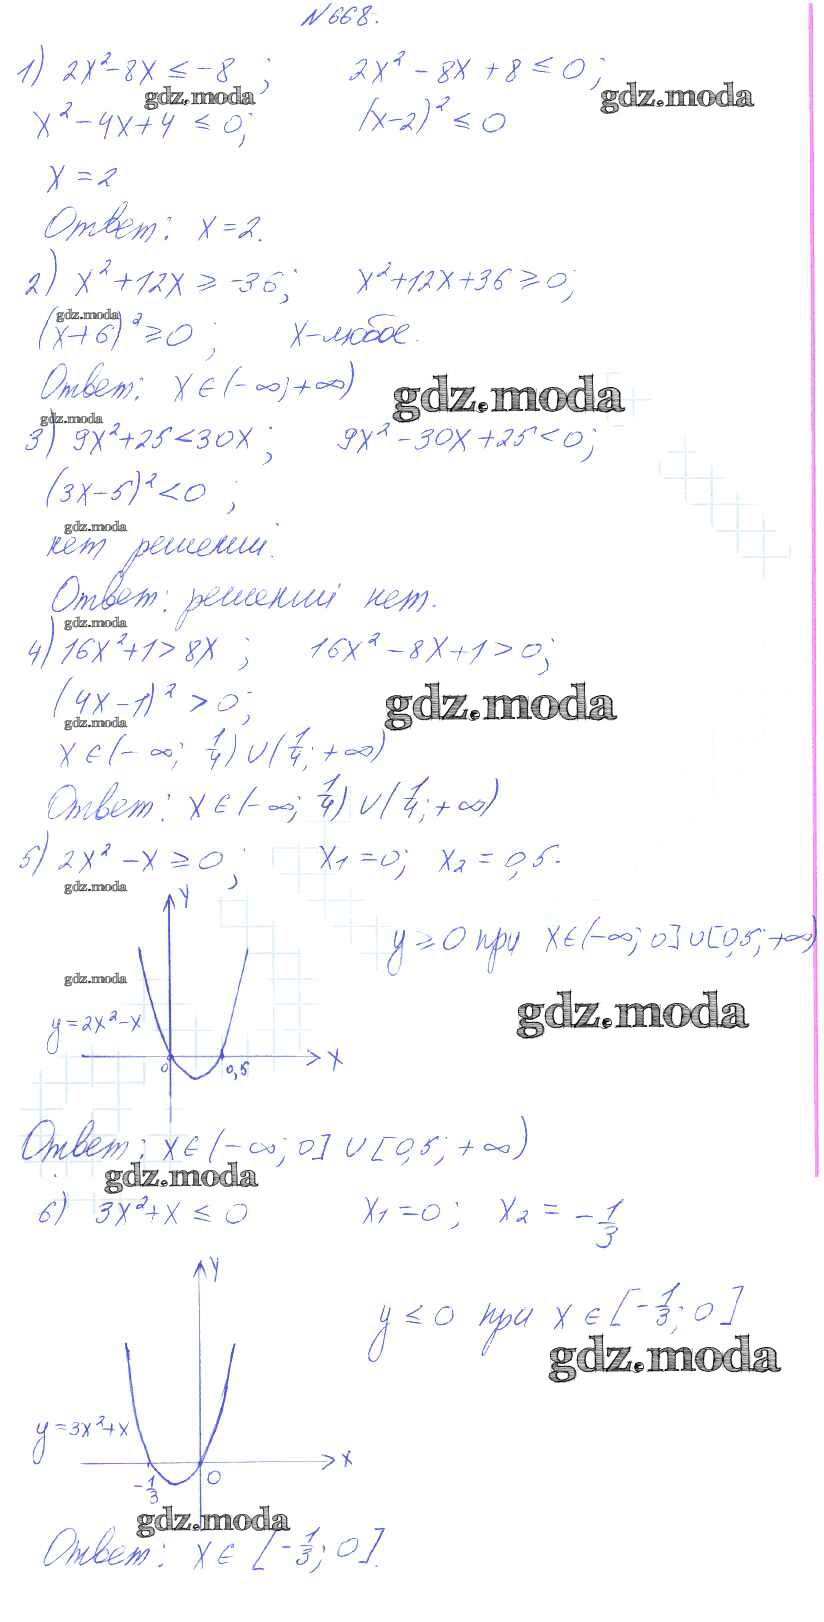 N668.
1) 2x² - 8x ≤ -8 ; 2x² - 8x + 8 ≤ 0 ;
gdz.moda gdz.moda
x² - 4x + 4 ≤ 0; (x-2)² ≤ 0
x = 2
Ответ: x = 2.
2) x² + 12x ≥ -36; x² + 12x + 36 ≥ 0;
gdz.moda
(x+6)² ≥ 0 ; x - любое.
Ответ: x ∈ (-∞; +∞)
gdz.moda
gdz.moda
3) 9x² + 25 < 30x ; 9x² - 30x + 25 < 0;
(3x-5)² < 0 ;
gdz.moda
нет решений.
Ответ: решений нет.
gdz.moda
4) 16x² + 1 > 8x ; 16x² - 8x + 1 > 0;
(4x-1)² > 0; gdz.moda
gdz.moda
x ∈ (-∞; 1/4) ∪ (1/4; +∞)
Ответ: x ∈ (-∞; 1/4) ∪ (1/4; +∞)
5) 2x² - x ≥ 0 ; x1 = 0; x2 = 0,5.
gdz.moda
y
y ≥ 0 при x ∈ (-∞; 0] ∪ [0,5; +∞)
gdz.moda
gdz.moda
y = 2x² - x
0 0,5 x
Ответ: x ∈ (-∞; 0] ∪ [0,5; +∞)
gdz.moda
6) 3x² + x ≤ 0 x1 = 0 ; x2 = -1/3
y
y ≤ 0 при x ∈ [-1/3; 0]
gdz.moda
y = 3x² + x
x
-1/3 0
gdz.moda
Ответ: x ∈ [-1/3; 0].